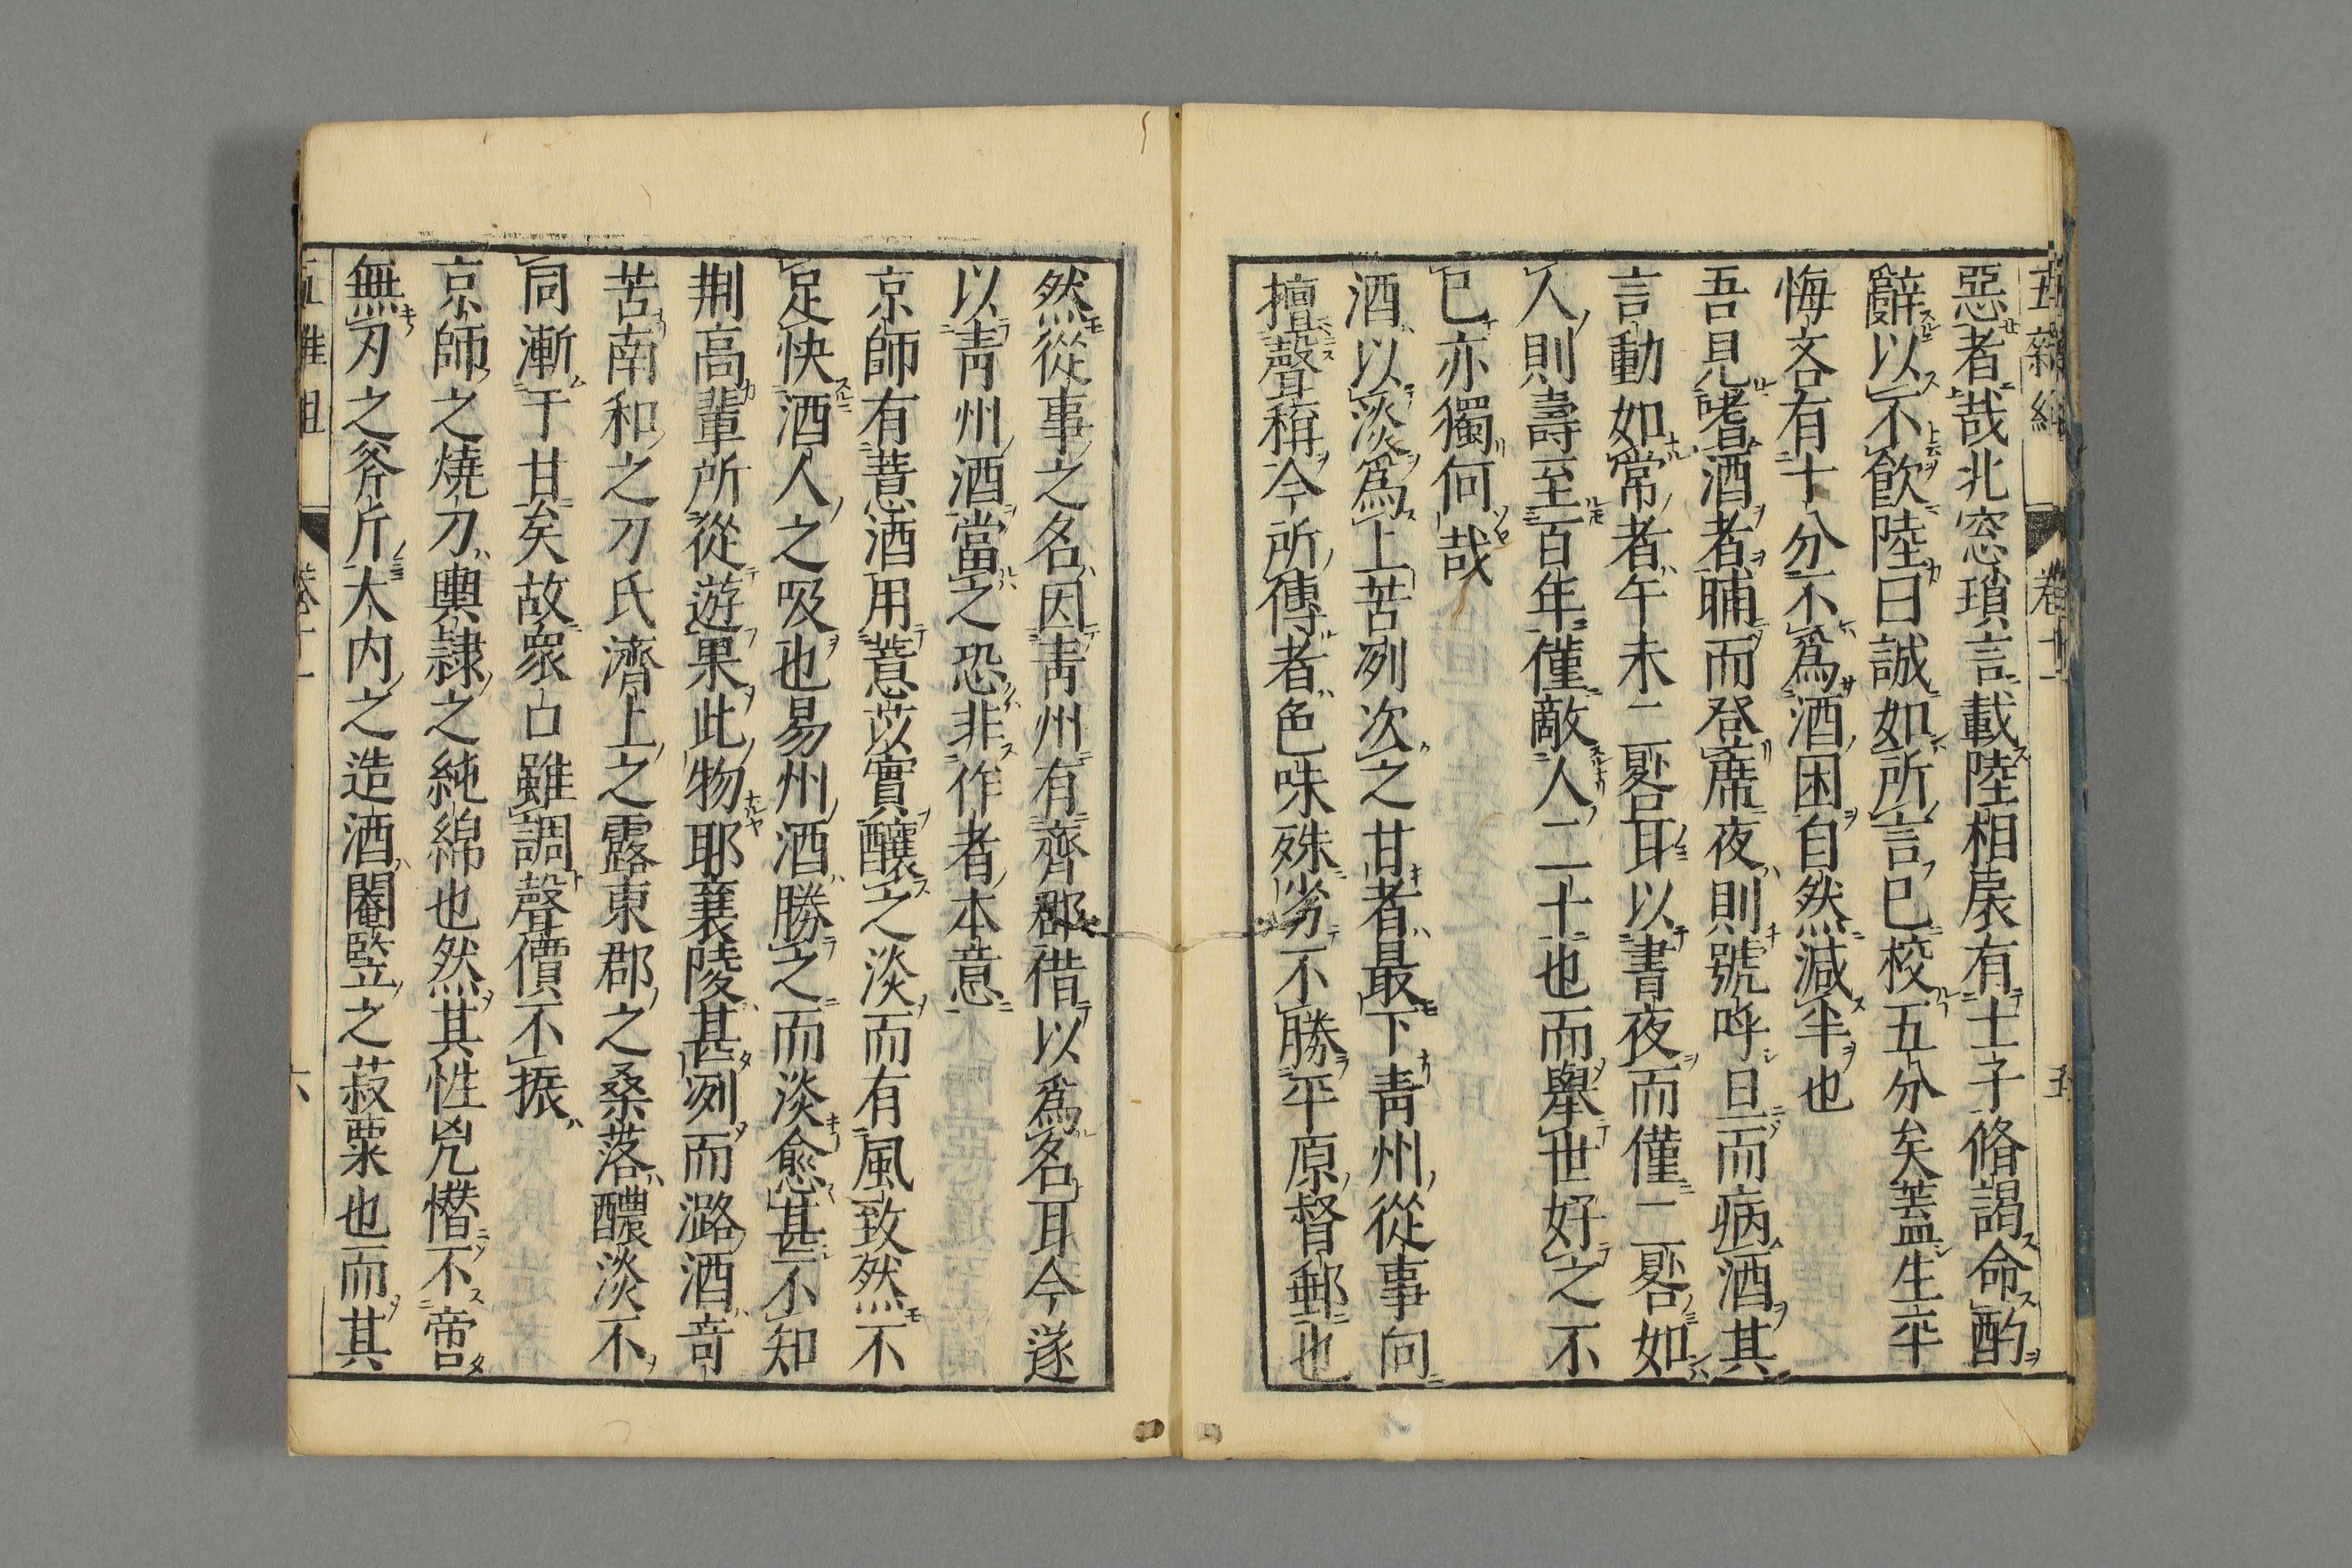 五雜組 卷十一 五
惡者哉北窓瑣言載陸相扆有士子脩謁命酌
辭以不飮陸曰誠如所言已校五分矣蓋生平
悔吝有十分不爲酒困自然減半也
吾見嗜酒者晡而登席夜則號呼旦而病酒其
言動如常者午未二晷耳以晝夜而僅二晷如
人則壽至百年僅敵人二十也而舉世好之不
已亦獨何哉
酒以淡爲上苦冽次之甘者最下靑州從事向
擅聲稱今所傳者色味殊劣不勝平原督郵也
然從事之名因靑州有齊郡借以爲名耳今遂
以靑州酒當之恐非作者本意
京師有薏酒用薏苡實釀之淡而有風致然不
足快酒人之吸也易州酒勝之而淡愈甚不知
荆高輩所從遊果此物耶襄陵甚冽而潞酒竒
苦南和之刁氏濟上之露東郡之桑落醲淡不
同漸于甘矣故衆口雖調聲價不振
京師之燒刀輿隷之純綿也然其性兇憯不啻
無刃之斧斤大内之造酒閹竪之菽粟也而其
五雜組 卷十一 六